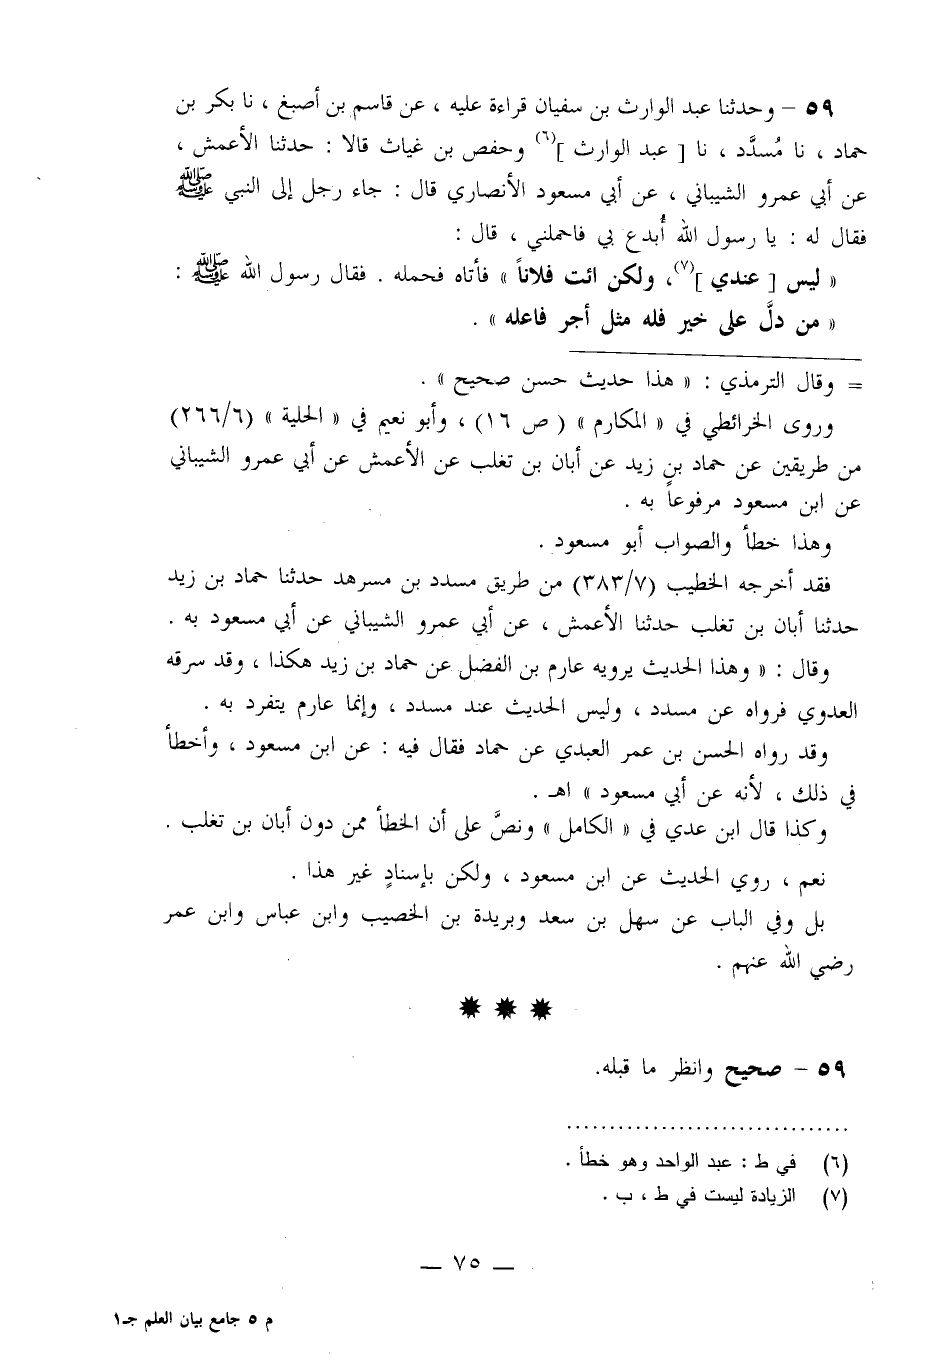 ٥٩ – وحدثنا عبد الوارث بن سفيان قراءة عليه ، عن قاسم بن أصبغ ، نا بكر بن
حماد ، نا مُسدَّد ، نا [ عبد الوارث ](٦) وحفص بن غياث قالا : حدثنا الأعمش ،
عن أبي عمرو الشيباني ، عن أبي مسعود الأنصاري قال : جاء رجل إلى النبي ﷺ
فقال له : يا رسول الله أُبدع بي فاحملني ، قال :
« ليس [ عندي ](٧)، ولكن ائت فلاناً » فأتاه فحمله . فقال رسول الله ﷺ :
« من دلَّ على خير فله مثل أجر فاعله » .
= وقال الترمذي : « هذا حديث حسن صحيح » .
وروى الخرائطي في « المكارم » ( ص ١٦) ، وأبو نعيم في « الحلية » (٢٦٦/٦)
من طريقين عن حماد بن زيد عن أبان بن تغلب عن الأعمش عن أبي عمرو الشيباني
عن ابن مسعود مرفوعاً به .
وهذا خطأ والصواب أبو مسعود .
فقد أخرجه الخطيب (٣٨٣/٧) من طريق مسدد بن مسرهد حدثنا حماد بن زيد
حدثنا أبان بن تغلب حدثنا الأعمش ، عن أبي عمرو الشيباني عن أبي مسعود به .
وقال : « وهذا الحديث يرويه عارم بن الفضل عن حماد بن زيد هكذا ، وقد سرقه
العدوي فرواه عن مسدد ، وليس الحديث عند مسدد ، وإنما عارم يتفرد به .
وقد رواه الحسن بن عمر العبدي عن حماد فقال فيه : عن ابن مسعود ، وأخطأ
في ذلك ، لأنه عن أبي مسعود » اهـ .
وكذا قال ابن عدي في « الكامل » ونصَّ على أن الخطأ ممن دون أبان بن تغلب .
نعم ، روي الحديث عن ابن مسعود ، ولكن بإسنادٍ غير هذا .
بل وفي الباب عن سهل بن سعد وبريدة بن الخصيب وابن عباس وابن عمر
رضي الله عنهم .
٥٩ – صحيح وانظر ما قبله.
(٦) في ط : عبد الواحد وهو خطأ .
(٧) الزيادة ليست في ط ، ب .
— ٧٥ —
م ٥ جامع بيان العلم جـ١